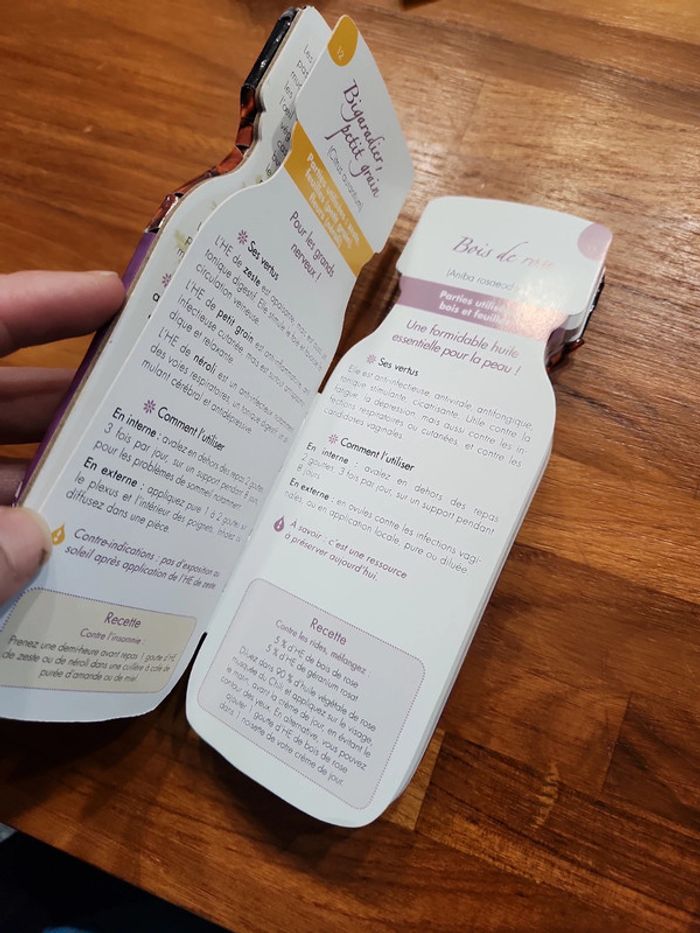 12
Bigaradier,
petit grain
(Citrus aurantium)
Parties utilisées : zeste,
feuilles (petit grain),
fleurs (néroli)
Pour les grands
nerveux !
Ses vertus
L'HE de zeste est apaisante, mais est aussi un
tonique digestif. Elle stimule le foie et la
circulation veineuse.
L'HE de petit grain est anti-inflammatoire, anti-
infectieuse cutanée, mais est surtout
dique et relaxante.
L'HE de néroli est un anti-infectieux
des voies respiratoires, un tonique digestif et
mulant cérébral et antidépressive.
Comment l'utiliser
En interne : avalez en dehors des repas 2 gouttes,
3 fois par jour, sur un support pendant 8 jours,
pour les problèmes de sommeil notamment.
En externe : appliquez pure 1 à 2 gouttes sur
le plexus et l'intérieur des poignets, inhalez ou
diffusez dans une pièce.
Contre-indications : pas d'exposition au
soleil après application de l'HE de zeste.
Recette
Contre l'insomnie :
Prenez une demi-heure avant repas 1 goutte d'HE
de zeste ou de néroli dans une cuillère à café de
purée d'amande ou de miel.
Bois de rose
(Aniba rosaeod
Parties utilisé
bois et feuille
Une formidable huile
essentielle pour la peau !
Ses vertus
Elle est anti-infectieuse, antivirale, antifongique,
tonique, stimulante, cicatrisante. Utile contre la
fatigue, la dépression, mais aussi contre les in-
fections respiratoires ou cutanées, et contre les
candidoses vaginales.
Comment l'utiliser
En interne : avalez en dehors des repas
2 gouttes, 3 fois par jour, sur un support pendant
8 jours.
En externe : en ovules contre les infections vagi-
nales ou en application locale, pure ou diluée.
À savoir : c'est une ressource
à préserver aujourd'hui.
Recette
Contre les rides, mélangez :
5 % d'HE de bois de rose
5 % d'HE de géranium rosat
Diluez dans 90 % d'huile végétale de rose
musquée du Chili et appliquez sur le visage,
le main, avant la crème de jour, en évitant le
contour des yeux. En alternative, vous pouvez
ajouter 1 goutte d'HE de bois de rose
dans 1 noisette de votre crème de jour.